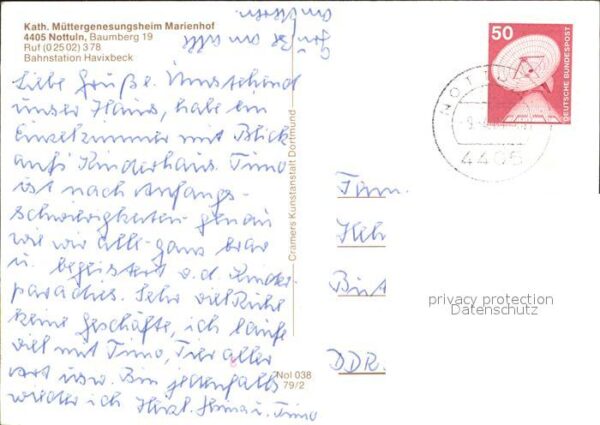 Kath. Müttergenesungsheim Marienhof
4405 Nottuln, Baumberg 19
Ruf (02502) 378
Bahnstation Havixbeck
Grüße an alle
am
Liebe Grüße. Umstehend
unser Haus, habe ein
Einzelzimmer mit Blick
aufs Kinderhaus. Timo
ist nach Anfangs-
schwierigkeiten genau
wie wir alle ganz brav
u. begeistert v. d. Kinder-
paradies. Sehr viel Ruhe
keine Geschäfte, ich laufe
viel mit Timo, Tier aller
Art usw. Bin jedenfalls
wieder ich Herzl. u. Timo
Cramers Kunstanstalt Dortmund
Nol 038
79/2
50
DEUTSCHE BUNDESPOST
NOTTULN
4405
Fam.
DDR.
privacy protection
Datenschutz